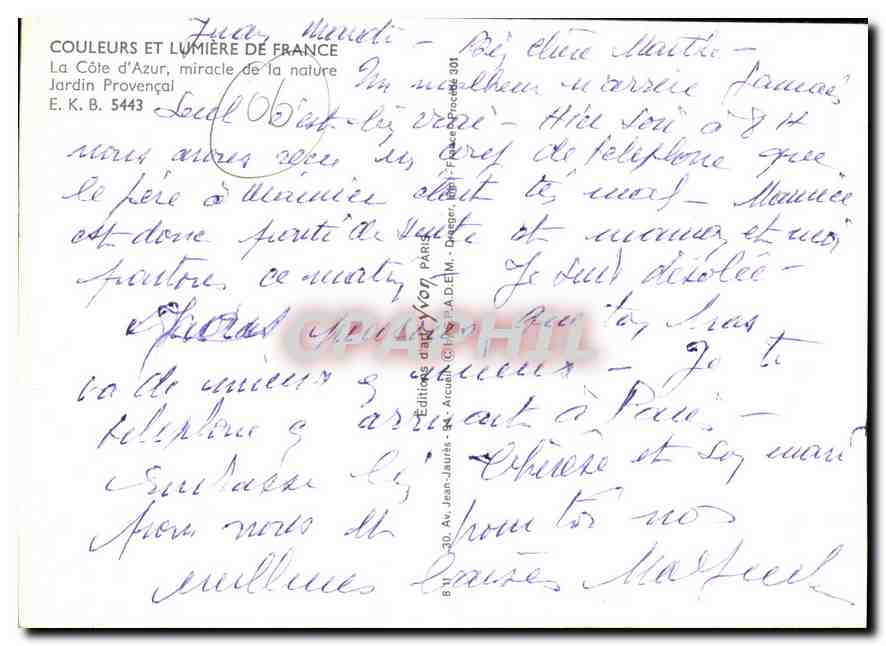 COULEURS ET LUMIÈRE DE FRANCE
La Côte d'Azur, miracle de la nature
Jardin Provençal
E. K. B. 5443
06
Mardi - chère Marthe -
Un malheur n'arrive Jamais
Seul c'est bien vrai - Hier soir à 8 H
nous avons recu un de telephone que
le père à était très mal - Maurice
est donc parti de et et moi
partons ce matin - Je suis désolée -
que ton bras
va de mieux en mieux - Je te
telephone en arrivant à Paris -
Embrasse bien Thérèse et son mari
pour nous et pour toi nos
meilleurs baisers
Editions d'art YVON PARIS
B 11 - 30, Av. Jean-Jaurès - 94 - Arcueil © S.P.A.D.E.M. - Draeger, Imp. - France - Procédé 301
CPAPHIL